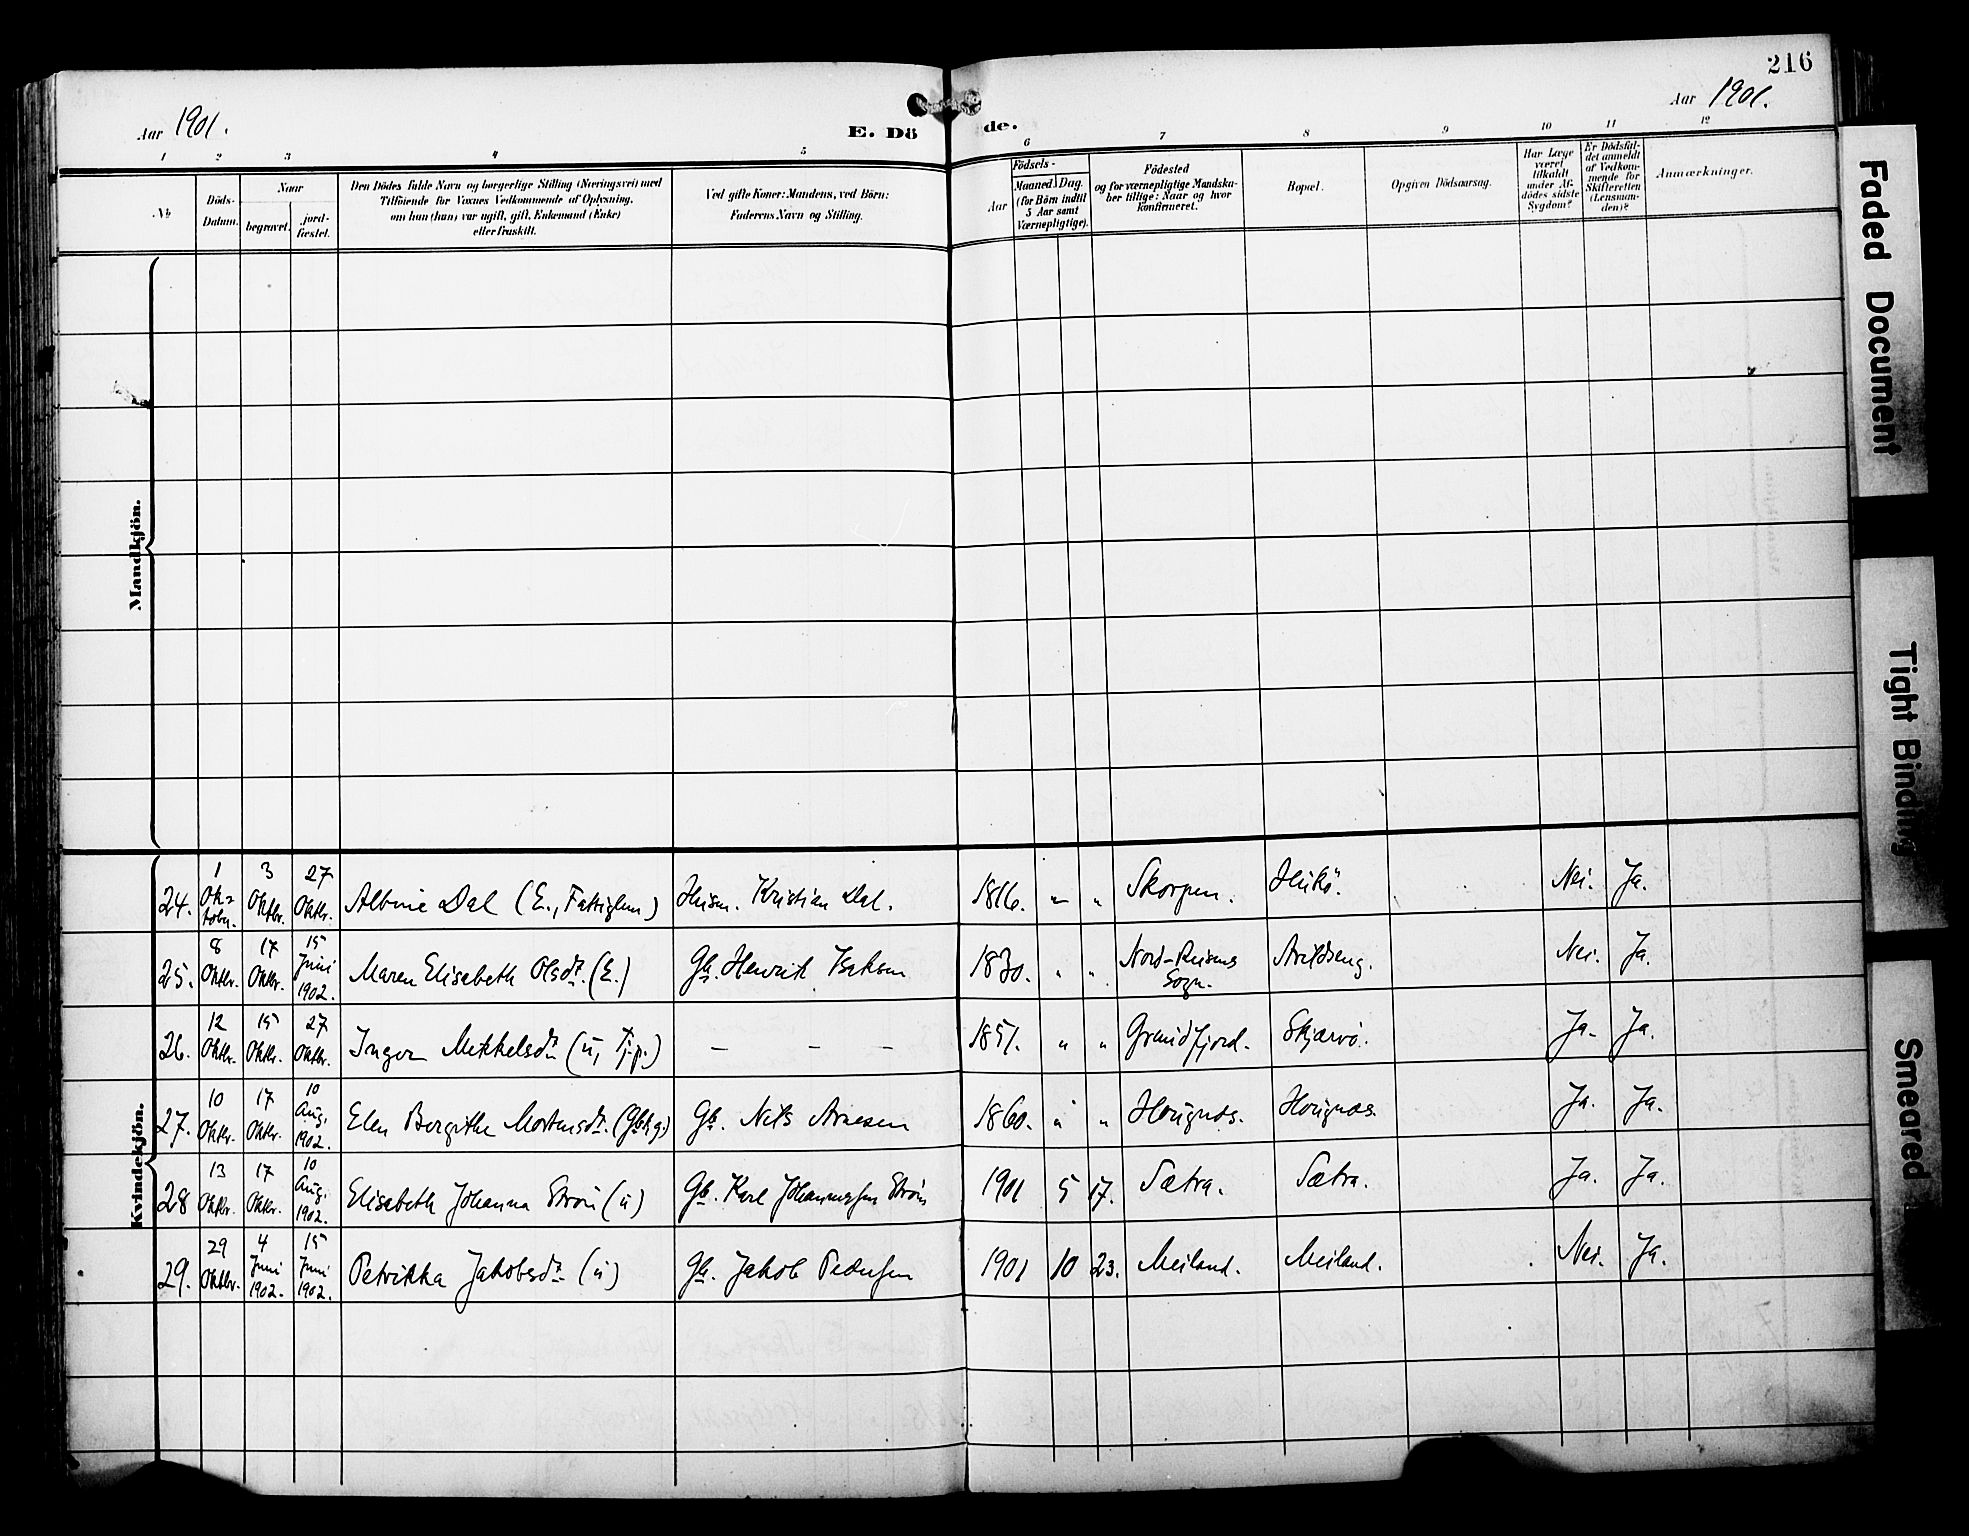 216
Aar 1901.
E. Dö
de.
Aar 1901.
1 2 3 4 5 6 7 8 9 10 11 12
No
Döds-
Datum.
Naar
begravet.
jord-
fæstet.
Den Dödes fulde Navn og borgerlige Stilling (Næringsvei) med
Tilföiende for Voxnes Vedkommende af Oplysning,
om hun (han) var ugift, gift, Enkemand (Enke)
eller fraskilt.
Ved gifte Koner: Mandens, ved Börn:
Faderens Navn og Stilling.
Födsels-
Aar
Maaned. Dag.
(for Börn indtil
5 Aar samt
Værnepligtige).
Födested
og for værnepligtige Mandska-
ber tillige: Naar og hvor
konfirmeret.
Bopæl.
Opgiven Dödsaarsag.
Har Læge
været
tilkaldt
under Af-
dödes sidste
Sygdom?
Er Dödsfal-
det anmeldt
af Vedkom-
mende for
Skifteretten
(Lensman-
den)?
Anmærkninger.
Mandkjön.
Kvindekjön.
24. 1 Ok= tobr. 3 Oktbr. 27 Oktbr. Albine Dal (E., Fattiglem) Husm. Kristian Dal. 1816. " " Skorpen. Nei. Ja.
25. 8 Oktbr. 17 Oktbr. 15 Juni 1902. Maren Elisabeth Olsdr. (E.) Gb. Henrik Isaksen 1830. " " Nord-Reisens Sogn. Arildseng. Nei. Ja.
26. 12 Oktbr. 15 Oktbr. 27 Oktbr. Inger Mikkelsdr. (u, Tj.p.) — — — 1851. " " Grundfjord. Skjærvö. Ja. Ja.
27. 10 Oktbr. 17 Oktbr. 10 Aug. 1902. Elen Bergithe Mortensdr. (Gbkg.) Gb. Nils Arnesen 1860. " " Haugnæs. Haugnæs. Ja. Ja.
28 13 Oktbr. 17 Oktbr. 10 Aug. 1902. Elisabeth Johanna Ström (u) Gb. Karl Johannessen Ström 1901 5 17. Sætra. Sætra. Ja. Ja.
29. 29 Oktbr. 4 Juni 1902. 15 Juni 1902. Petrikka Jakobsdr. (u) Gb. Jakob Pedersen 1901 10 23. Meiland. Meiland. Nei. Ja.
Faded Document
Tight Binding
Smeared